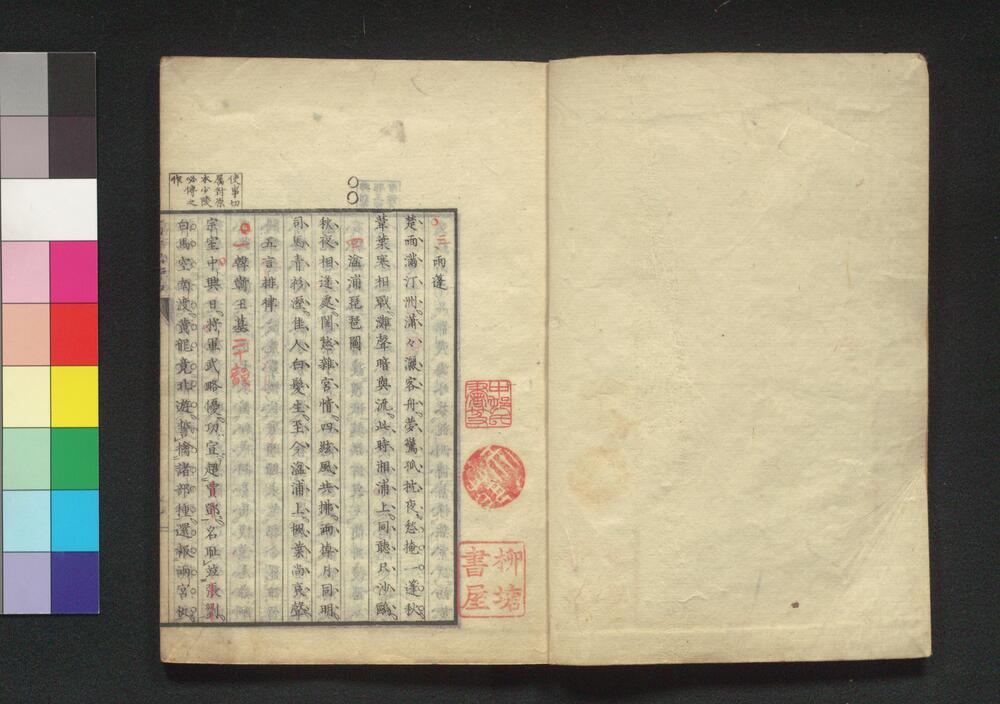 三雨蓬
楚雨滿汀洲瀟々灑客舟夢驚孤枕夜愁掩一蓬秋
葦葉寒相戰灘聲暗與流此時湘浦上同聽只沙鷗
四湓浦琵琶圖
秋夜相逢處閨愁雜宦情四絃風共拂兩槳月同明
司馬青衫溼佳人白髮生至今湓浦上楓葉尚哀聲
五言排律
一韓蘄王墓三十韻
宗室中興日將軍武略優功宣超賈鄧名耻並張劉
白馬空南渡黃龍竟北遊誓擒諸部種還報兩宮仇
使事切
屬對原
本少陵
必傳之
作
柳塘
書屋